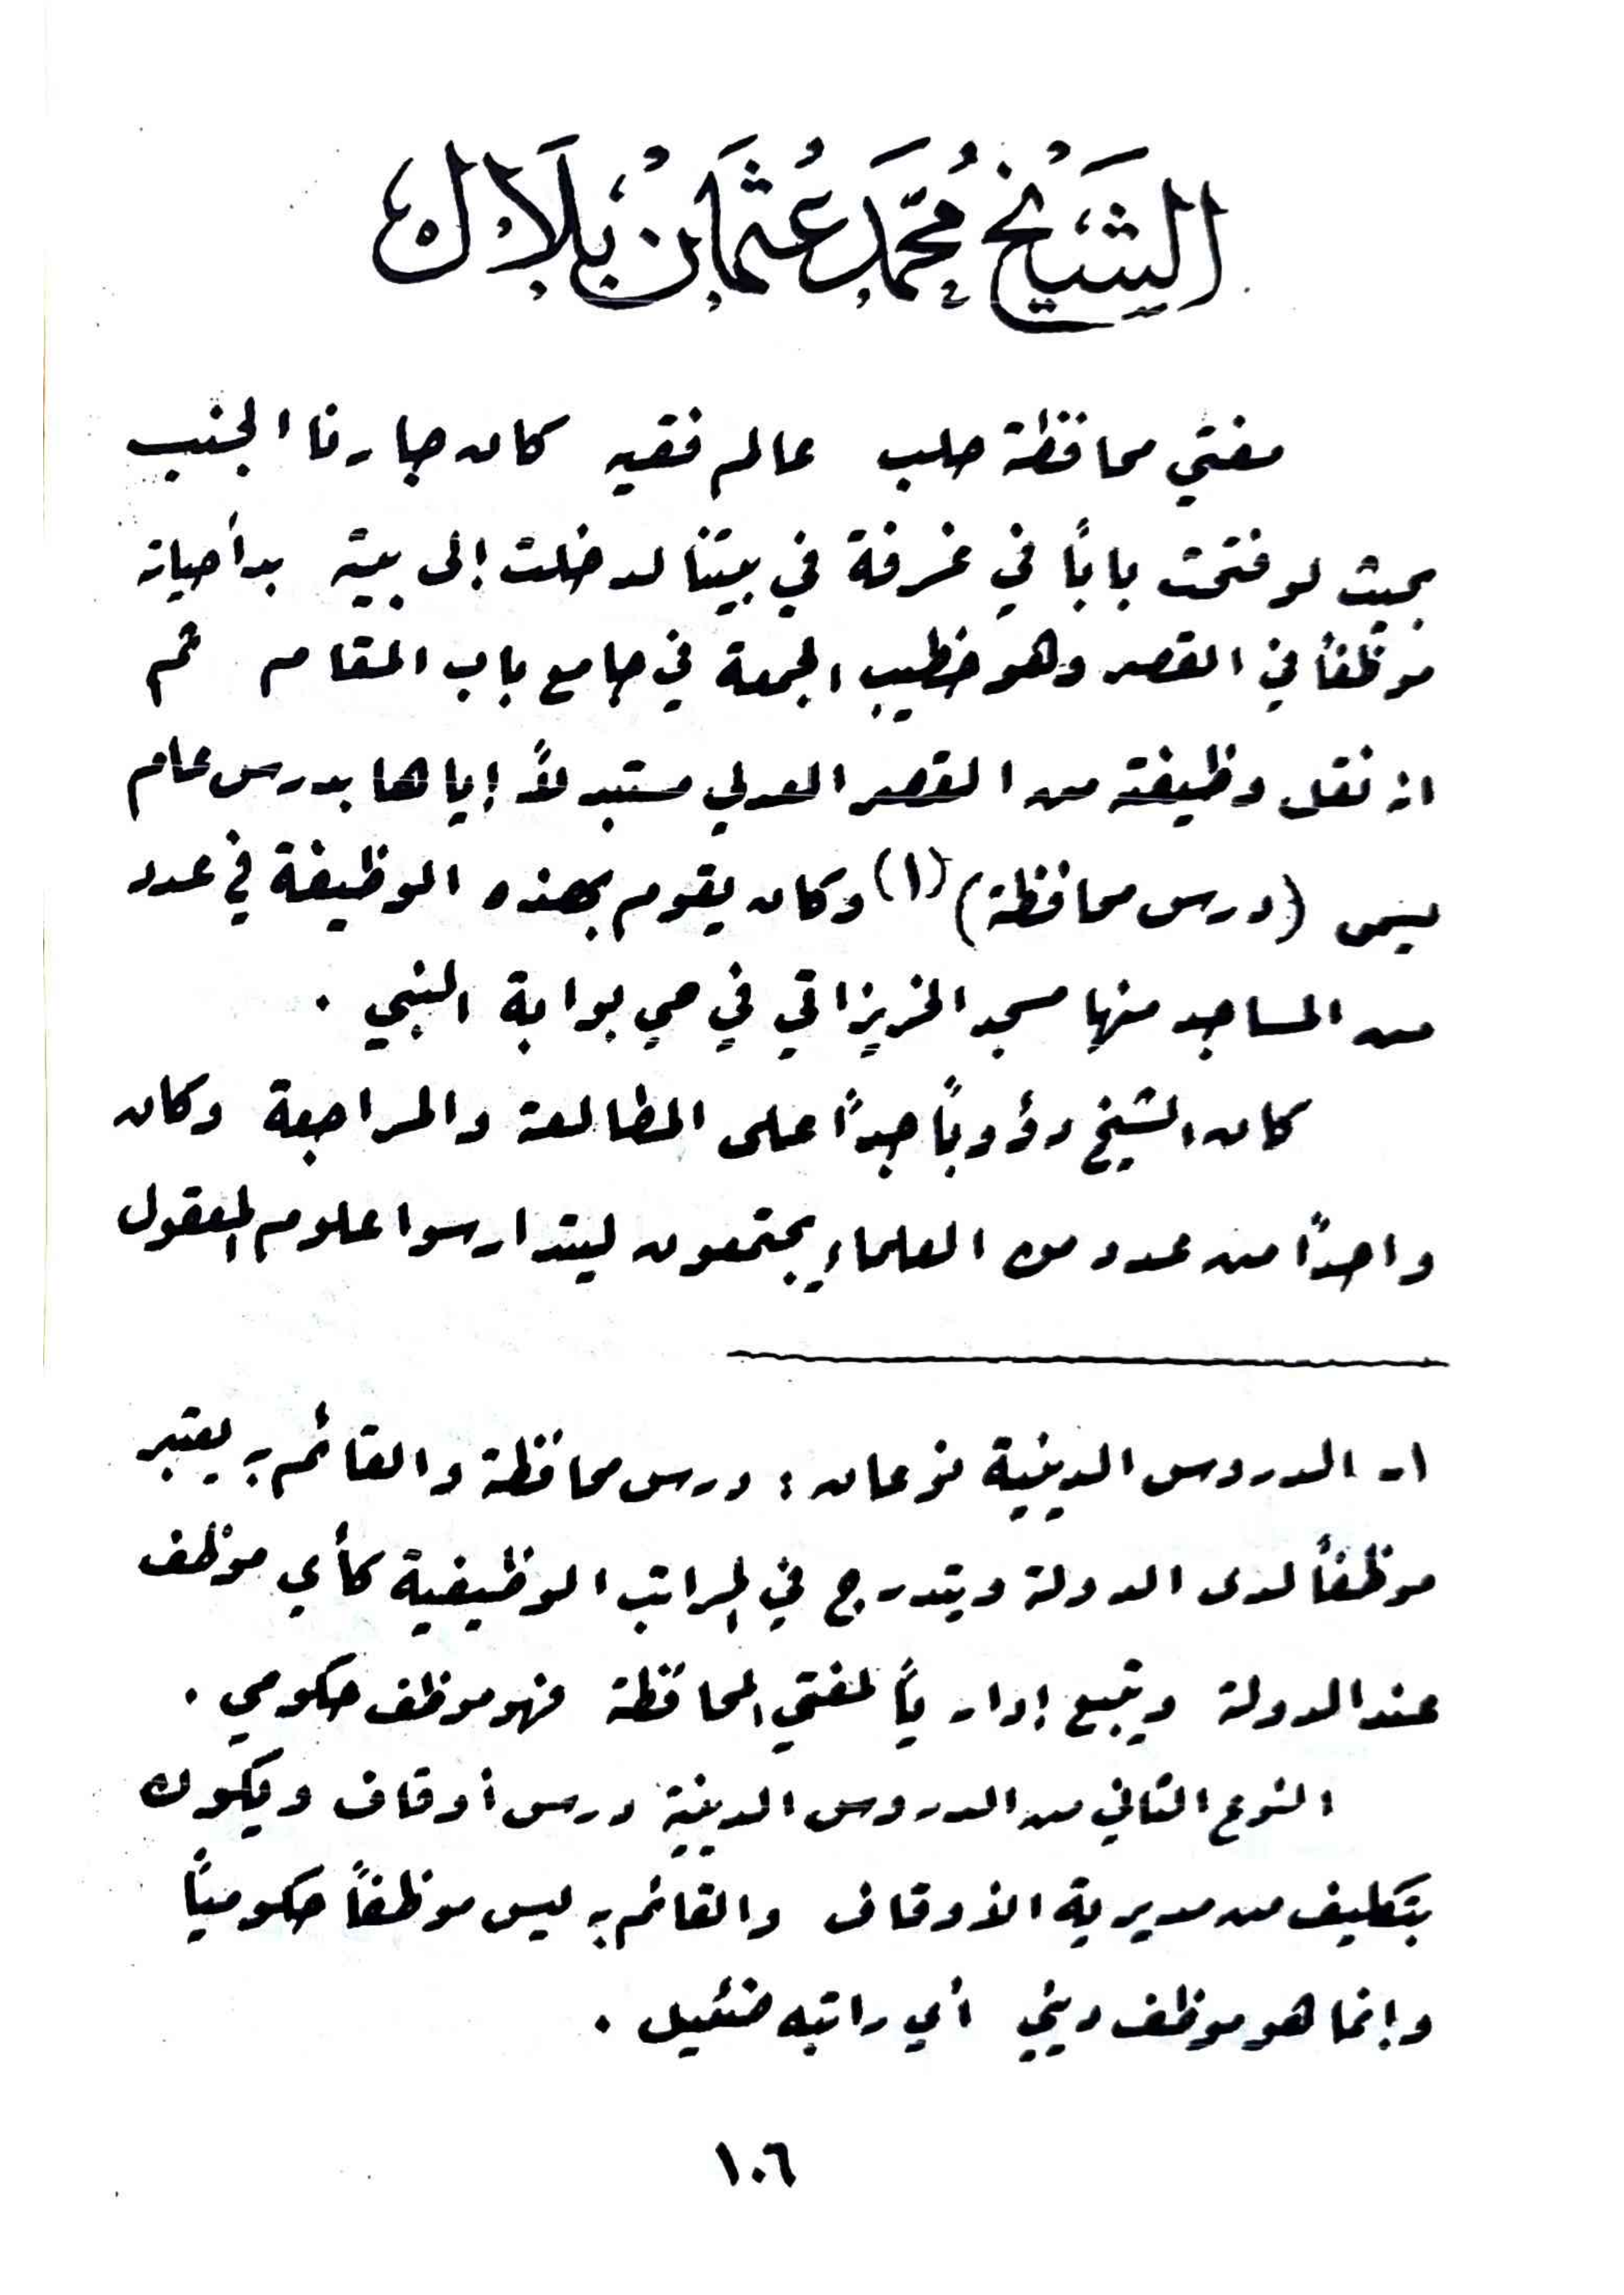 الشَيْخ مُحَمَّد عُثْمَان بْلَال
مفتي محافظة حلب عالم فقيه كان جارنا الجنب
بحيث لو فتحت باباً في غرفة في بيتنا لدخلت إلى بيته بدأ حياته
موظفاً في القصر وهو خطيب الجمعة في جامع باب المقام ثم
انه نقل وظيفته من القصر العدلي مستبدلاً إياها بدرس عام
يسمى (درس محافظة) (١) وكان يقوم بهذه الوظيفة في عدد
من المساجد منها مسجد الخريزاتي في حي بوابة النبي .
كان الشيخ دؤوباً جداً على المطالعة والمراجعة وكان
واحداً من عدد من العلماء يجتمعون ليتدارسوا علوم المعقول
١- الدروس الدينية نوعان : درس محافظة والقائم به يعتبر
موظفاً لدى الدولة ويتدرج في المراتب الوظيفية كأي موظف
عند الدولة ويتبع إدارياً لمفتي المحافظة فهو موظف حكومي .
النوع الثاني من الدروس الدينية درس أوقاف ويكون
بتكليف من مديرية الأوقاف والقائم به ليس موظفاً حكومياً
وإنما هو موظف ديني أي راتبه ضئيل .
١٠٦